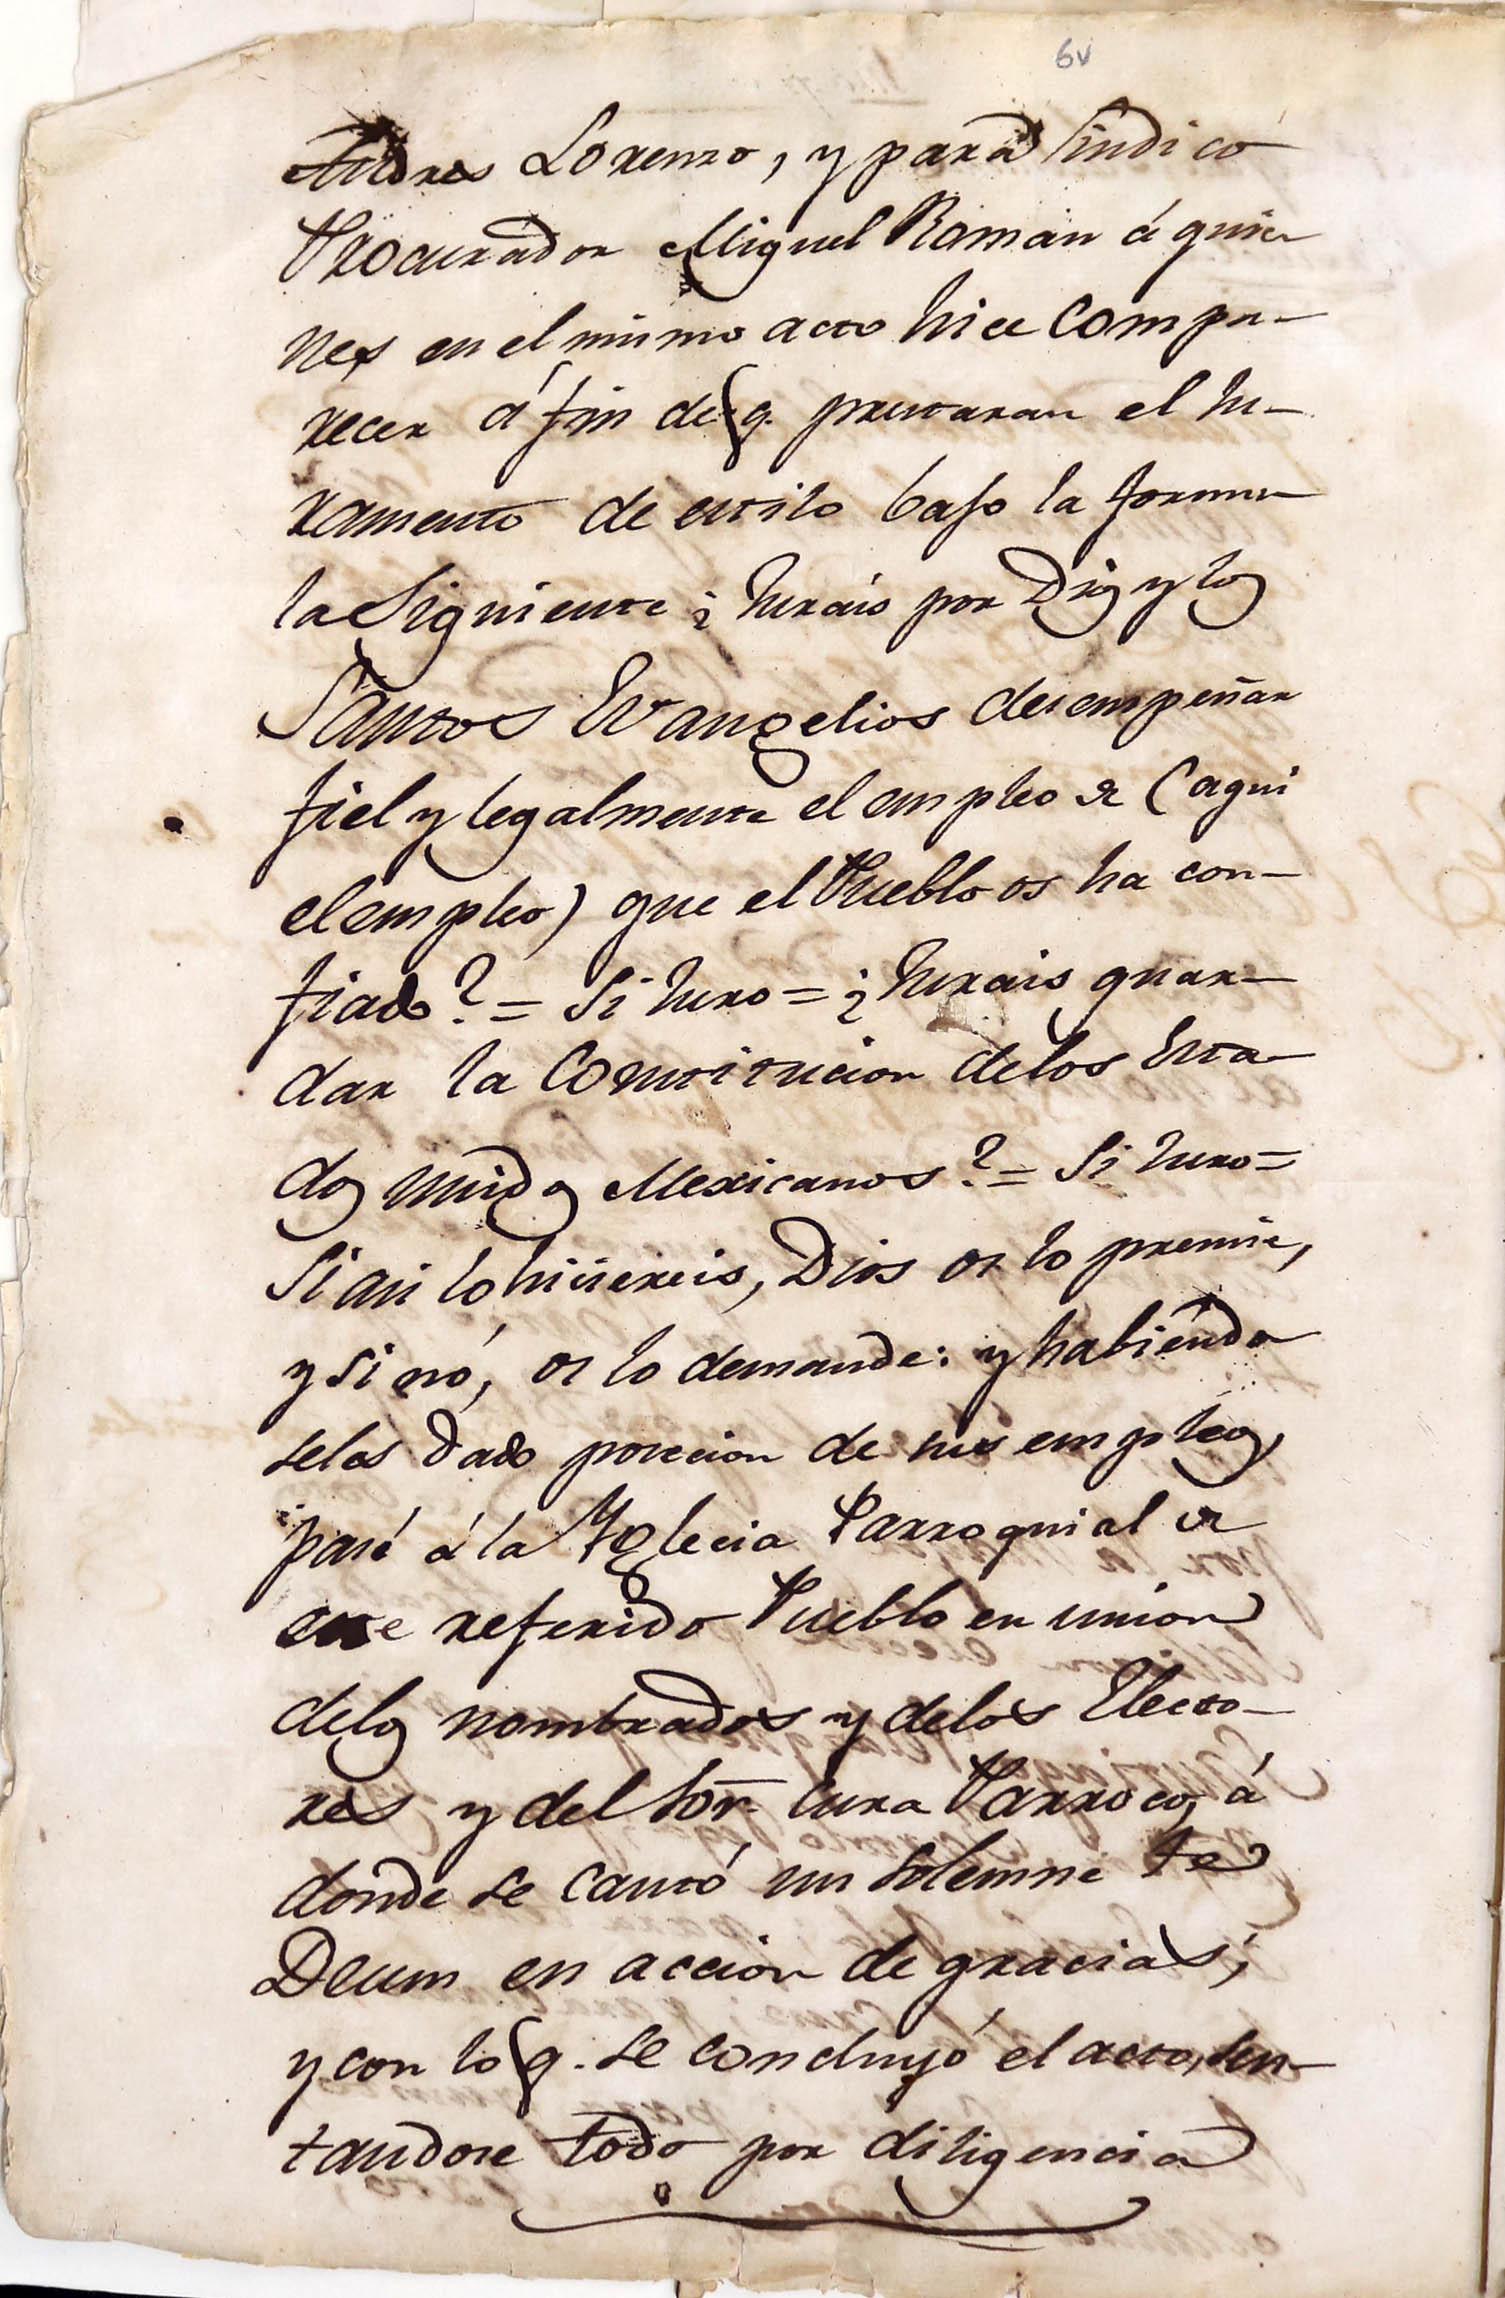 6v
Andres Lorenzo, y para Sindico
Procurador Miguel Roman á quie
nes en el mismo acto hice compa-
recer á fin de q. prestaran el Ju-
ramento de estilo bajo la formu
la Siguiente ¿Jurais por Dios y los
Santos Evangelios desempeñar
fiel y legalmente el empleo de (aqui
el empleo) que el Pueblo os ha con-
fiado? = Si Juro = ¿Jurais guar-
dar la Constitucion delos Esta-
dos unidos Mexicanos? = Si Juro =
Si asi lo hiciereis, Dios os lo premie,
y si nó, os lo demande: y habiendo
seles dado posecion de sus empleos,
pasé á la Yglecia Parroquial de
este referido Pueblo en union
delos nombrados y delos Electo-
res y del Sor. Cura Parroco, á
donde se cantó un solemne te
Deum en accion de gracias;
y con lo q. se concluyó el acto, sen-
tandose todo por diligencia